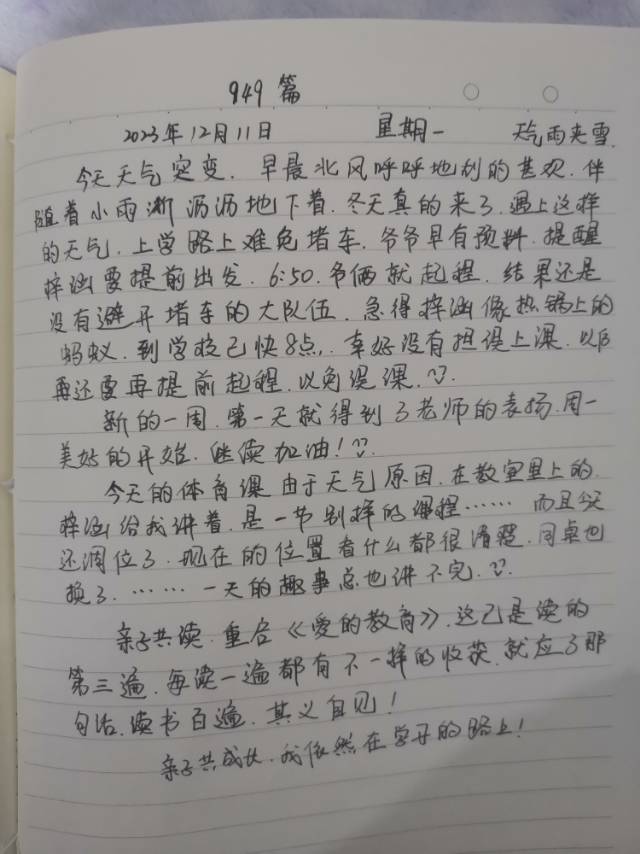 949篇
2023年12月11日 星期一 天气雨夹雪
今天天气突变.早晨北风呼呼地刮的甚欢.伴
随着小雨淅沥沥地下着.冬天真的来了.遇上这样
的天气.上学路上难免堵车.爷爷早有预料.提醒
梓涵要提前出发.6:50.爷俩就起程.结果还是
没有避开堵车的大队伍.急得梓涵像热锅上的
蚂蚁.到学校已快8点.幸好没有担误上课.以后
再还要再提前起程.以免误课.
新的一周.第一天就得到了老师的表扬.周一
美好的开始.继续加油!
今天的体育课由于天气原因.在教室里上的.
梓涵给我讲着.是一节别样的课程……而且今天
还调位了.现在的位置看什么都很清楚.同桌也
换了.……一天的趣事总也讲不完.
亲子共读.重启《爱的教育》.这已是读的
第三遍.每读一遍都有不一样的收获.就应了那
句话.读书百遍.其义自见!
亲子共成长.我依然在学习的路上!